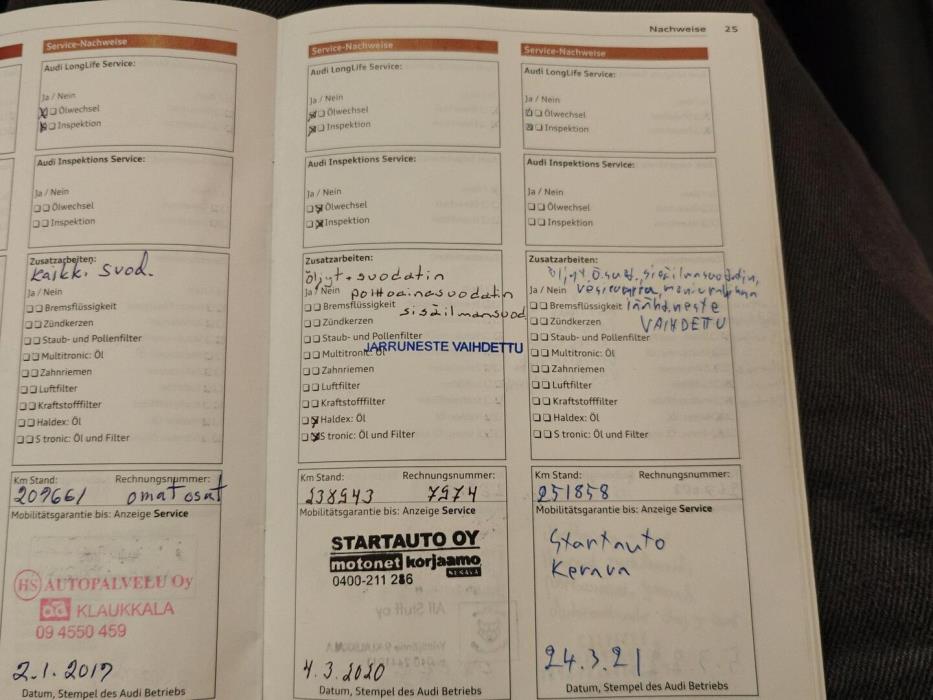 Nachweise 25
Service-Nachweise
Audi LongLife Service:
Ja / Nein
Ölwechsel
Inspektion
Audi Inspektions Service:
Ja / Nein
Ölwechsel
Inspektion
Zusatzarbeiten:
kaikk. suod.
Ja / Nein
Bremsflüssigkeit
Zündkerzen
Staub- und Pollenfilter
Multitronic: Öl
Zahnriemen
Luftfilter
Kraftstofffilter
Haldex: Öl
S tronic: Öl und Filter
Km Stand: Rechnungsnummer:
209661 omat osat
Mobilitätsgarantie bis: Anzeige Service
HS AUTOPALVELU Oy
ad KLAUKKALA
09 4550 459
2.1.2017
Datum, Stempel des Audi Betriebs
Service-Nachweise
Audi LongLife Service:
Ja / Nein
Ölwechsel
Inspektion
Audi Inspektions Service:
Ja / Nein
Ölwechsel
Inspektion
Zusatzarbeiten:
öljyt + suodatin
Ja / Nein polttoainesuodatin
Bremsflüssigkeit sisäilmansuod
Zündkerzen
Staub- und Pollenfilter
JARRUNESTE VAIHDETTU
Multitronic: Öl
Zahnriemen
Luftfilter
Kraftstofffilter
Haldex: Öl
S tronic: Öl und Filter
Km Stand: Rechnungsnummer:
238943 7974
Mobilitätsgarantie bis: Anzeige Service
STARTAUTO OY
motonet korjaamo
KERAVA
0400-211 286
4.3.2020
Datum, Stempel des Audi Betriebs
Service-Nachweise
Audi LongLife Service:
Ja / Nein
Ölwechsel
Inspektion
Audi Inspektions Service:
Ja / Nein
Ölwechsel
Inspektion
Zusatzarbeiten:
öljyt ö.suod., sisäilmansuodatin,
Ja / Nein
Bremsflüssigkeit jäähd.neste
Zündkerzen VAIHDETTU
Staub- und Pollenfilter
Multitronic: Öl
Zahnriemen
Luftfilter
Kraftstofffilter
Haldex: Öl
S tronic: Öl und Filter
Km Stand: Rechnungsnummer:
251858
Mobilitätsgarantie bis: Anzeige Service
Startauto
Kerava
24.3.21
Datum, Stempel des Audi Betriebs